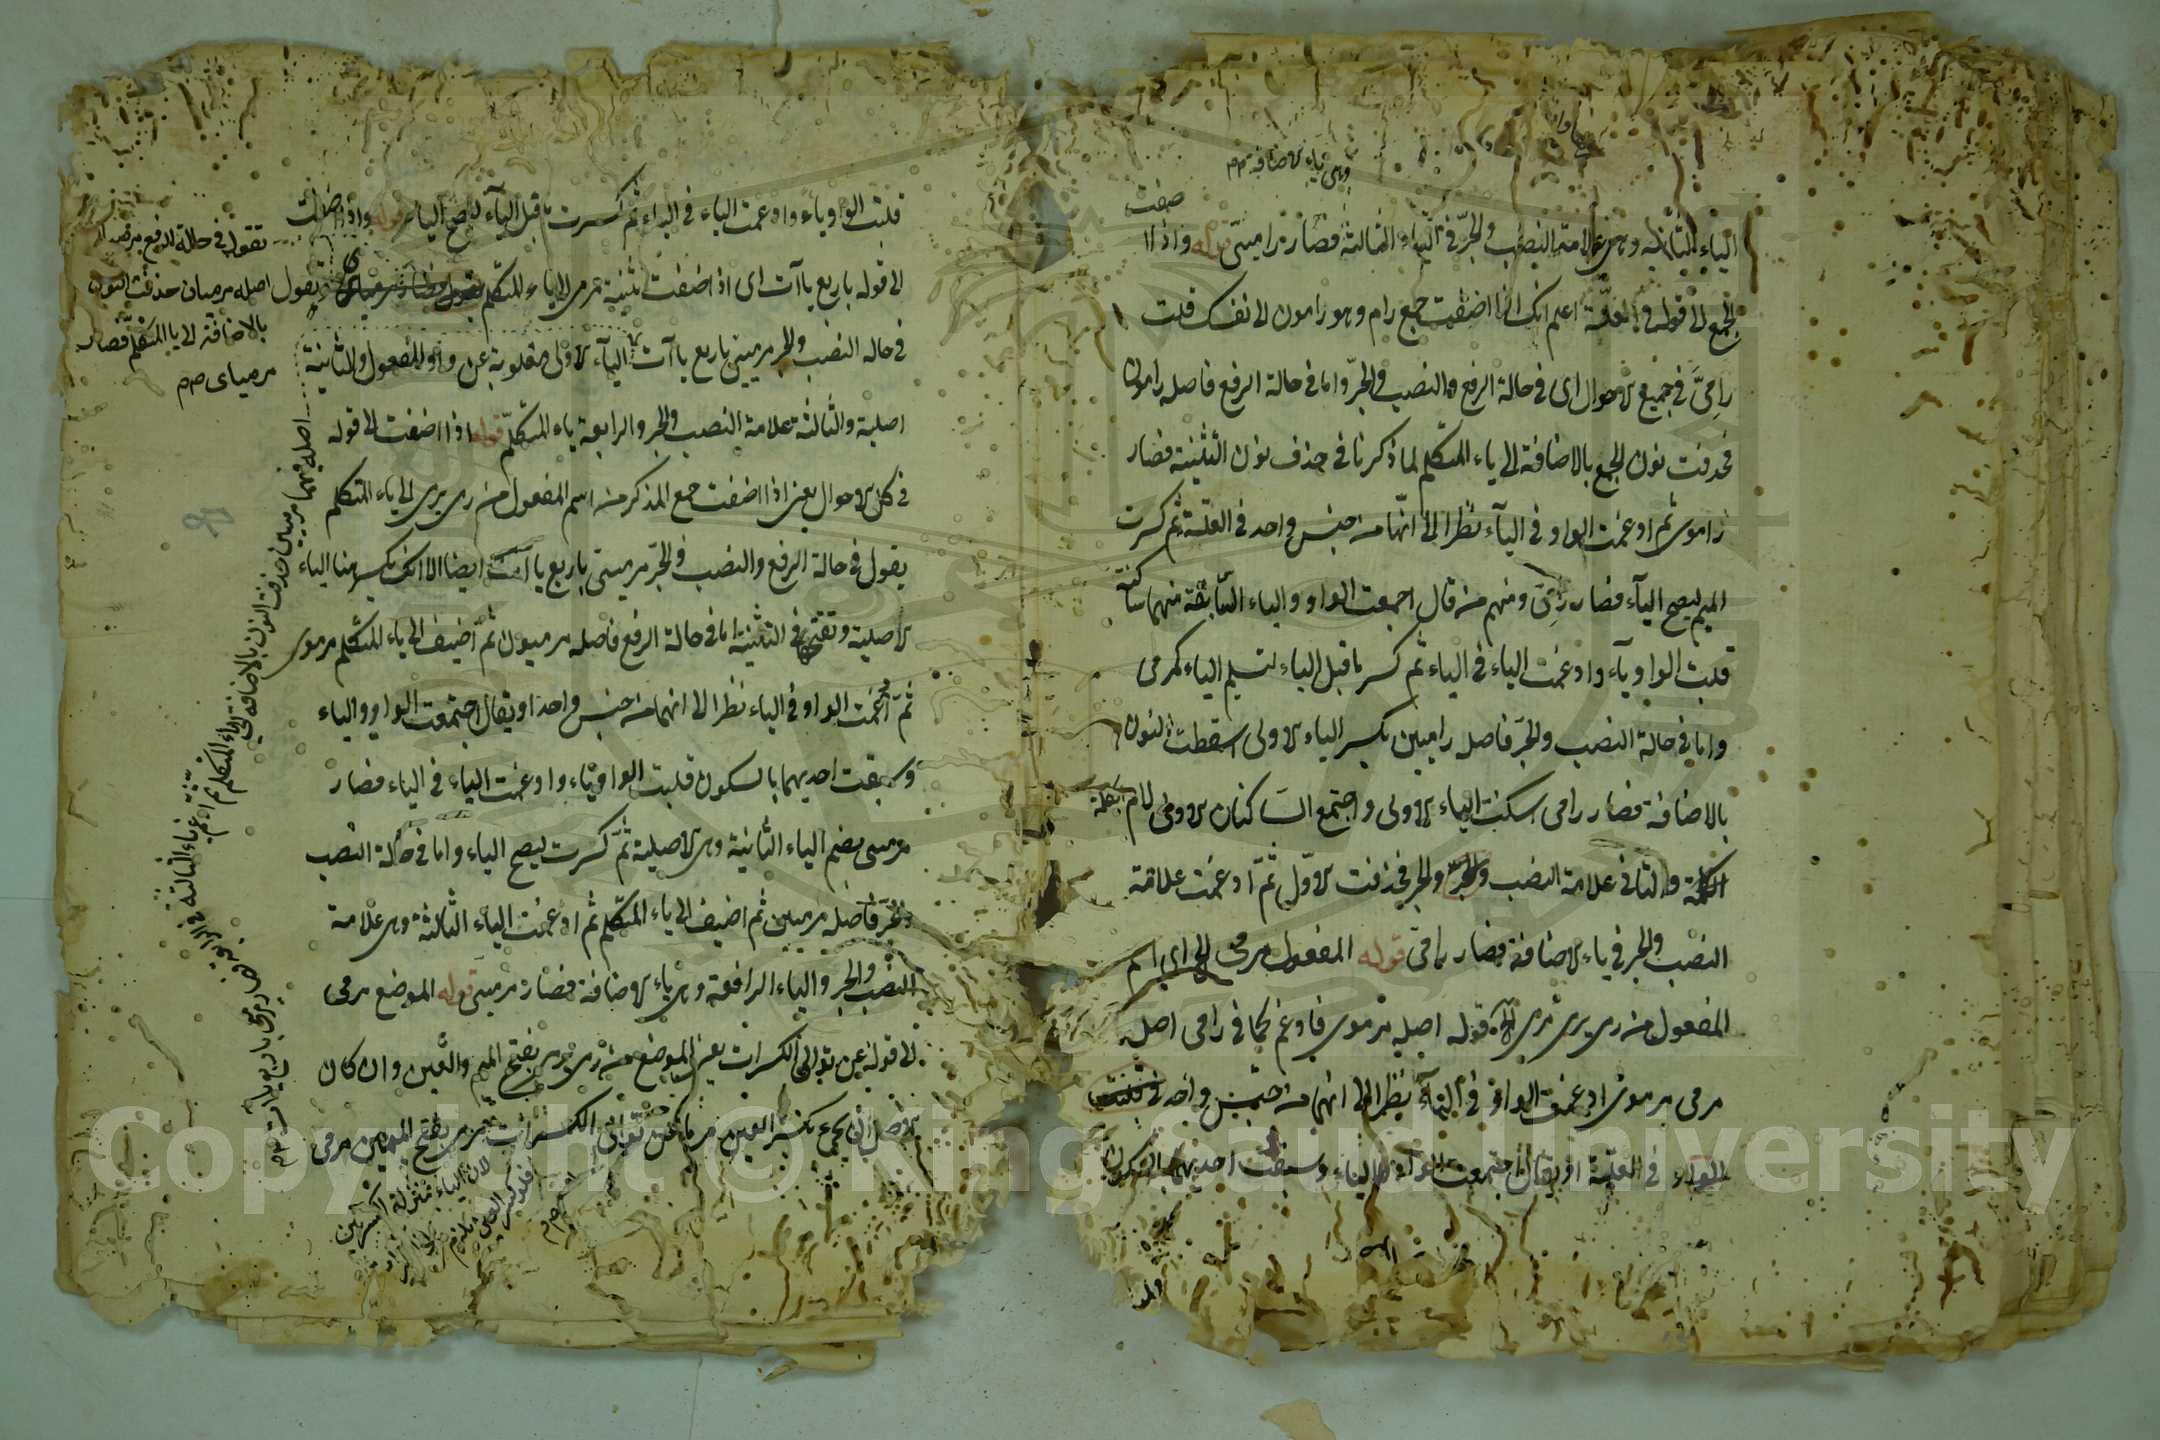 وهى ياء الاضافة صح
الياء الثانية وهى علامة النصب والجرّ فى الياء الثالثة فصار راميىّ قوله واذا اضفت
الجمع الى قوله فى العلة اعلم انك اذا اضفت جمع رام وهو رامون الى نفسك قلت
رامِىَّ فى جميع الاحوال اى فى حالة الرفع والنصب والجرّ واما فى حالة الرفع فاصله رامون
فحذفت نون الجمع بالاضافة الى ياء المتكلم لما ذكرنا فى حذف نون التثنية فصار
راموى ثم ادغمت الواو فى الياء نظرا الى انهما من جنس واحد فى العلة ثم كسرت
الميم ليصح الياء فصار رامِىَّ ومنهم من قال اجمعت الواو والياء السابقة منهما ساكنة
قلبت الواو ياء وادغمت الياء فى الياء ثم كسر ما قبل الياء لتسليم الياء كمرمى
واما فى حالة النصب والجرّ فاصله راميين بكسر الياء الاولى اسقطت النون
بالاضافة فصار رامى سكنت الياء الاولى واجتمع الساكنان الاولى لام
الكلمة والثانى علامة النصب والجر فحذفت الاوّل ثم ادغمت علامة
النصب والجر فى ياء الاضافة فصار رامىّ قوله المفعول مرمى الخ اى اسم
المفعول من رمى يرمى مرمى قوله اصله مرموى فادغم كما فى رامى اصل
مرمى مرموى ادغمت الواو فى الياء نظرا الى انهما من جنس واحد
فى العلة او يقال اجتمعت الواو والياء وسبقت احديهما بالسكون
قلبت الواو ياء وادغمت الياء فى الياء ثم كسرت ما قبل الياء ليصح الياء قوله واذا اضفت
الى قوله باربع ياآت اى اذا اضفت تثنية مرمى الى ياء المتكلم تقول
فى حالة النصب والجر مرميىى باربع ياآت الياء الاولى منقلوبة عن واو المفعول والثانية
اصلية والثالثة علامة النصب والجر والرابعة ياء المتكلّم قوله اذا اضفت الى قوله
فى كل الاحوال يعنى اذا اضفت جمع المذكر من اسم المفعول من رمى يرمى الى ياء المتكلم
يقول فى حالة الرفع والنصب والجرّ مرميىّ باربع ياآت ايضا الا انك بكسر هنا الياء
الاصلية وتفتحها فى التثنية اما فى حالة الرفع فاصله مرميون ثم اضيف الى ياء المتكلم مرموى
ثم ادغمت الواو فى الياء نظرا الى انهما من جنس واحد او يقال اجتمعت الواو والياء
وسبقت احديهما بالسكون قلبت الواو ياء وادغمت الياء فى الياء فصار
مرميى بضم الياء الثانية وهى الاصلية ثم كسرت ليصح الياء واما فى حالة النصب
والجرّ فاصله مرميين ثم اضيف الى ياء المتكلم ثم ادغمت الياء الثالثة وهى علامة
النصب والجر والياء الرابعة وهى ياء الاضافة فصار مرميى قوله الموضع مرمى
الى قوله عن توالى الكسرات يعنى الموضع من رمى يرمى بفتح الميم والعين وان كان
الاصل ان يجمع بكسر العين عن توالى الكسرات مرمى بفتح الميمين مرمى
تقول فى حالة الرفع
اصله مرميان حذفت النون
بالاضافة الى ياء المتكلّم فصار
مرمياى صح
اصله فيهما مرميين حذفت النون بالاضافة الى ياء المتكلم ثم ادغم
ياء الثالثة فى الرابعة
فصار مرميى باربع ياآت صح
لان الياء بمنزلة الكسرتين
فلو كسر العين يلزم
Copyright © King Saud University